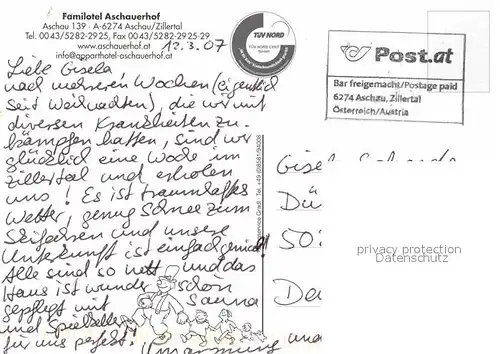 Familotel Aschauerhof
Aschau 139 · A-6274 Aschau/Zillertal
Tel. 0043/5282-2925, Fax 0043/5282-2925-29
www.aschauerhof.at
info@apparthotel-aschauerhof.at
12.3.07
TÜV NORD
TÜV NORD CERT
Post.at
Bar freigemacht/Postage paid
6274 Aschau, Zillertal
Österreich/Austria
Liebe Gisela
nach mehreren Wochen (eigentlich
seit Weihnachten), die wir mit
diversen Krankheiten zu
kämpfen hatten, sind wir
glücklich eine Woche im
Zillertal und erholen
uns! Es ist traumhaftes
Wetter, genug Schnee zum
Skifahren und unsere
Unterkunft ist einfach genial!!
Alle sind so nett und das
Haus ist wunderschön
gepflegt mit Sauna
und
für uns perfekt! Umarmung und
Tel. +49 (0)8581/94038
Gisela
Dü
50
De
privacy protection
Datenschutz